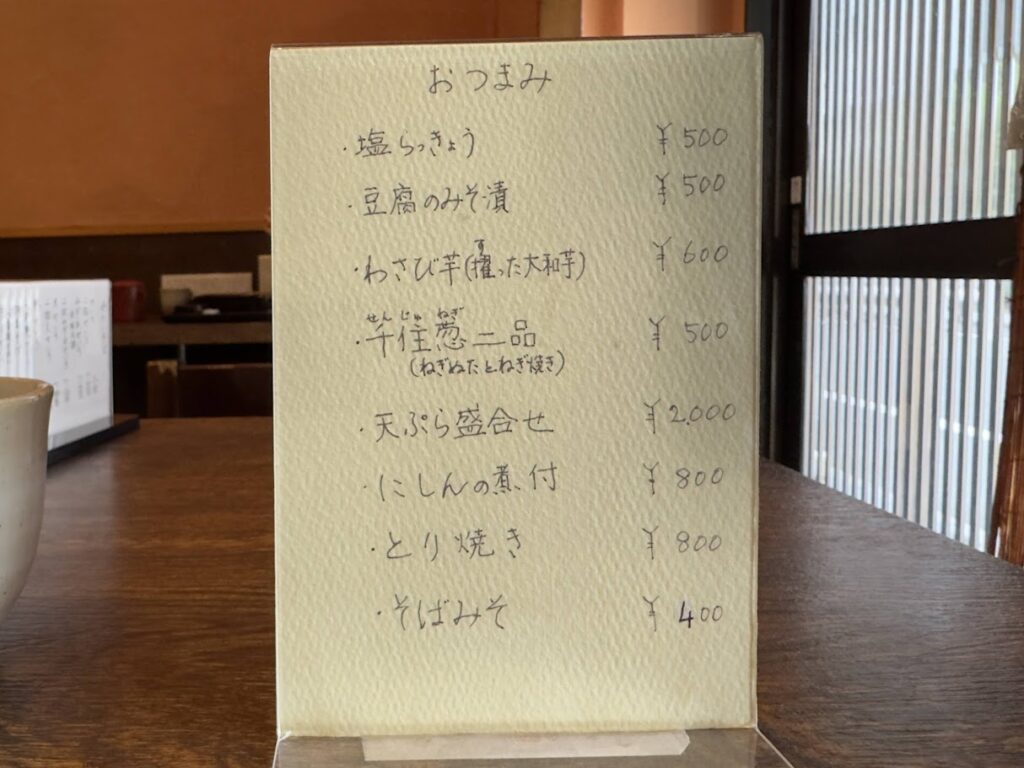 おつまみ
・塩らっきょう ¥500
・豆腐のみそ漬 ¥500
・わさび芋(擢った大和芋) ¥600
・千住葱二品 ¥500
(ねぎぬたとねぎ焼き)
・天ぷら盛合せ ¥2.000
・にしんの煮付 ¥800
・とり焼き ¥800
・そばみそ ¥400